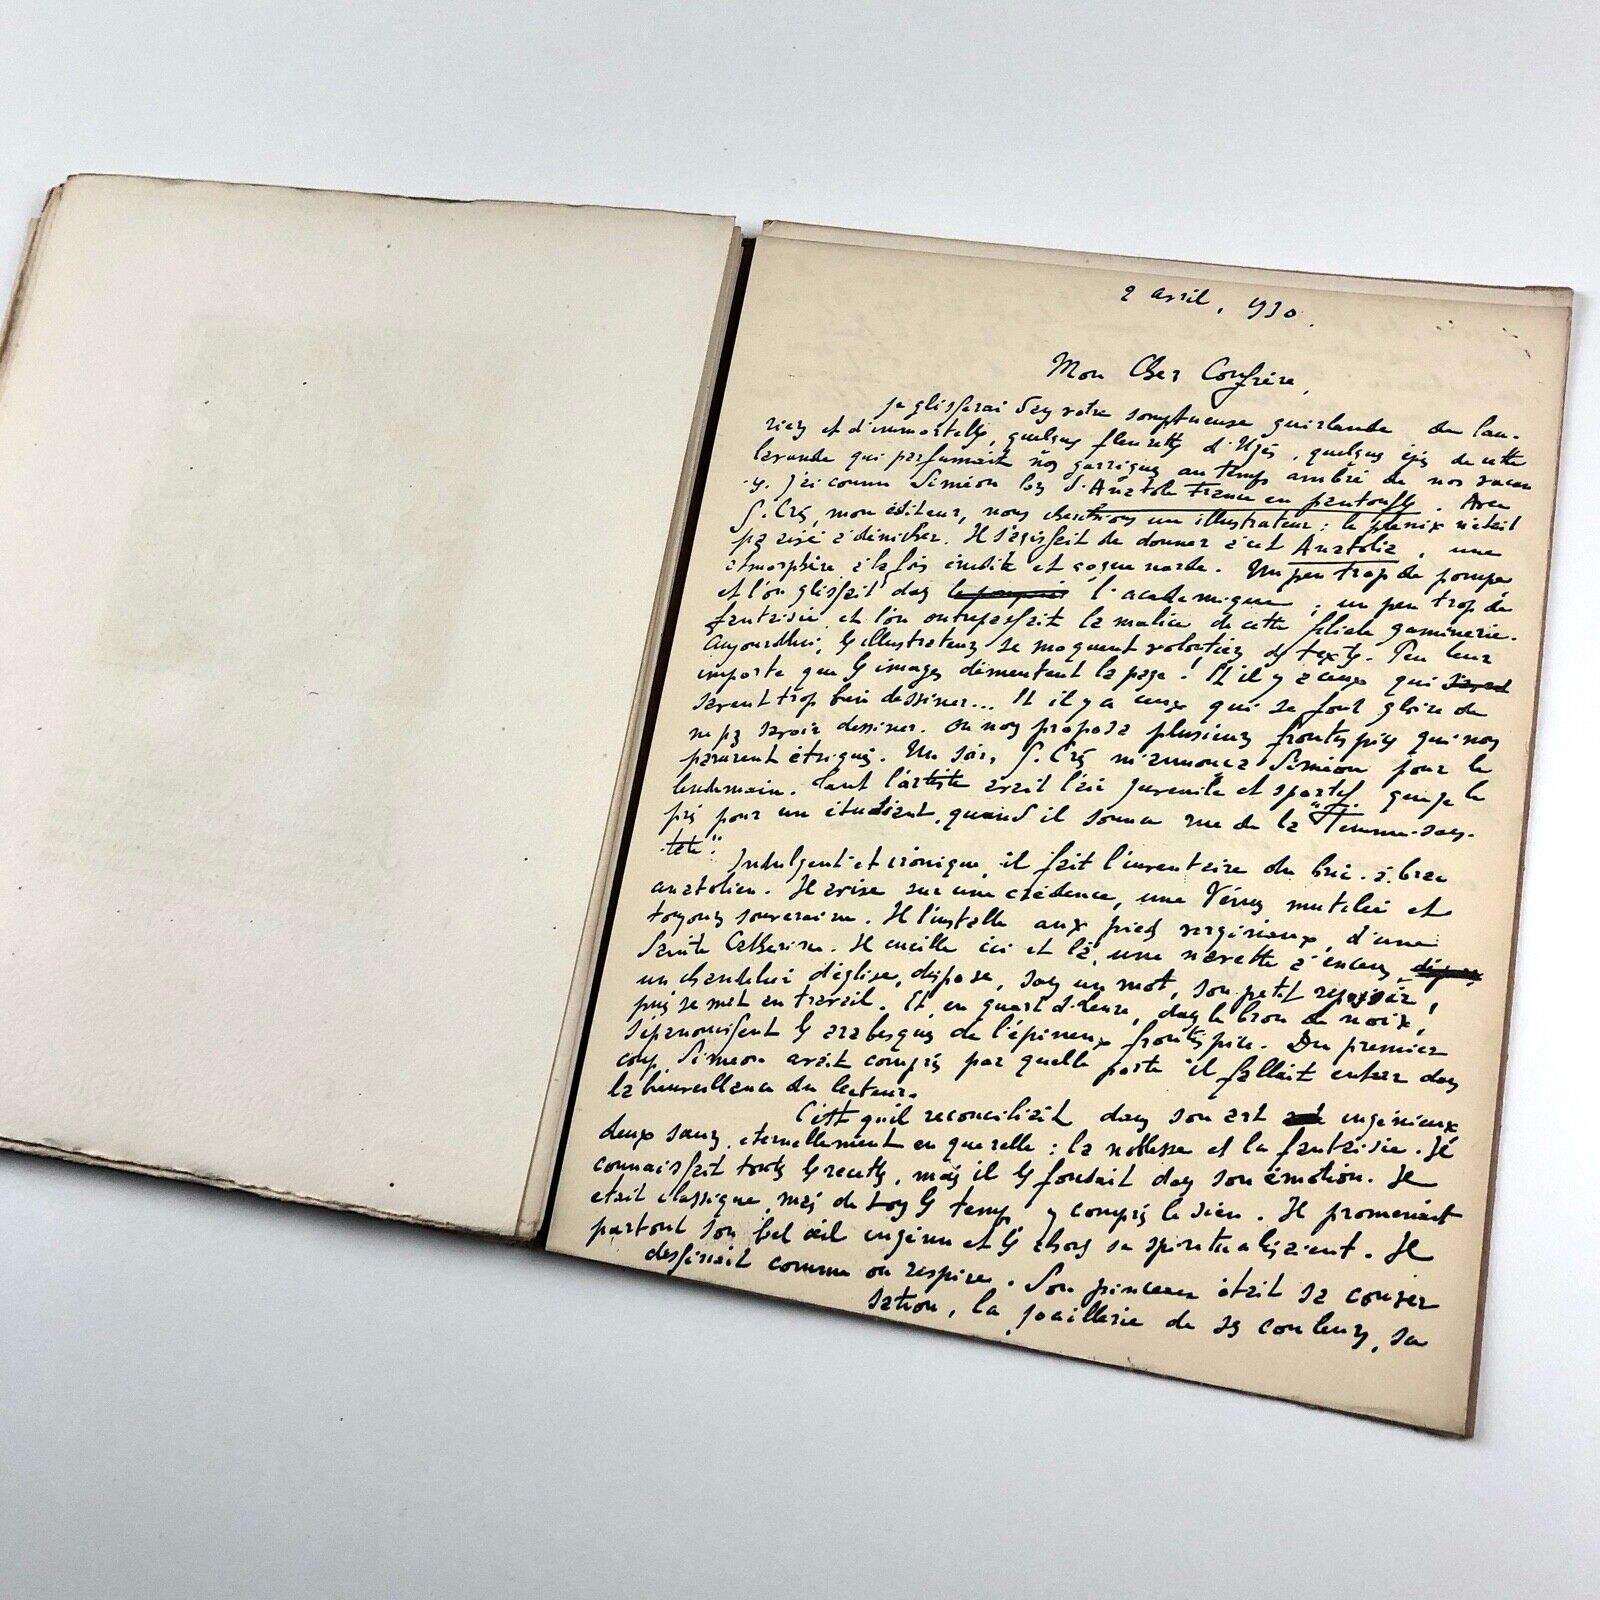 2 avril, 1930.
Mon Cher Confrère,
Je glisserai dans votre somptueuse guirlande de lau-
riers et d'immortelles, quelques fleurettes d'Uzès, quelques épis de cette
lavande qui parfumait nos garrigues au temps ambré de nos vacan
-s. J'ai connu Siméon lors d'Anatole France en pantoufles. Avec
G. Crès, mon éditeur, nous cherchions un illustrateur : le phénix n'était
pas aisé à dénicher. Il s'agissait de donner à cet Anatole, une
atmosphère à la fois érudite et goguenarde. Un peu trop de pompe
et l'on glissait dans l'académique ; un peu trop de
fantaisie et l'on outrepassait la malice de cette filiale gaminerie.
Aujourd'hui, les illustrateurs se moquent volontiers des textes. Peu leur
importe que les images démentent la page ! Et il y a ceux qui savent
savent trop bien dessiner... Et il y a ceux qui se font gloire de
ne pas savoir dessiner. On nous proposa plusieurs frontispices qui nous
parurent étriqués. Un soir, G. Crès m'annonça Siméon pour le
lendemain. Tant l'artiste avait l'air juvénile et sportif que je le
pris pour un étudiant, quand il sonna rue de la "Femme-sans-
-tête".
Indulgent et ironique, il fait l'inventaire du bric-à-brac
anatolien. Il avise sur une crédence, une Vénus mutilée et
toujours souveraine. Il l'installe aux pieds virginaux, d'une
Sainte Catherine. Il cueille ici et là, une navette à encens,
un chandelier d'église, dispose, sans un mot, son petit reposoir,
puis se met en travail. Et, en quart d'heure, dans le brou de noix,
s'épanouissent les arabesques de l'épineux frontispice. Du premier
coup, Siméon avait compris par quelle porte il fallait entrer dans
la bienveillance du lecteur.
C'est qu'il réconciliait dans son art ingénieux
deux sœurs éternellement en querelle : la noblesse et la fantaisie. Il
connaissait toutes les recettes, mais il les fondait dans son émotion. Il
était classique, mais de tous les temps, y compris le sien. Il promenait
partout son bel œil ingénu et les choses se spiritualisaient. Il
dessinait comme on respire. Son pinceau était sa conver
sation, la joaillerie de ses couleurs, sa